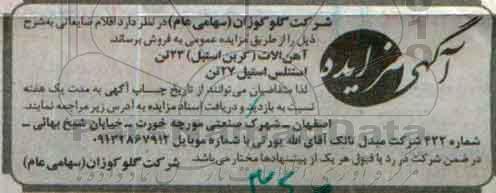 آگهی مزایده
شرکت گلوکوزان (سهامی عام) در نظر دارد اقلام ضایعاتی به شرح
ذیل را از طریق مزایده عمومی به فروش برساند.
آهن آلات (کربن استیل) ۲۳ تن
استنلس استیل ۲۷ تن
لذا متقاضیان می‌توانند از تاریخ چاپ آگهی به مدت یک هفته
نسبت به بازدید و دریافت اسناد مزایده به آدرس زیر مراجعه نمایند.
اصفهان - شهرک صنعتی مورچه خورت - خیابان شیخ بهائی -
شماره ۴۲۲ شرکت مبدل تانک آقای الله یورتی با شماره موبایل ۰۹۱۳۲۸۶۷۹۱۲
در ضمن شرکت در رد یا قبول هر یک از پیشنهادها مختار می‌باشد.
شرکت گلوکوزان (سهامی عام)